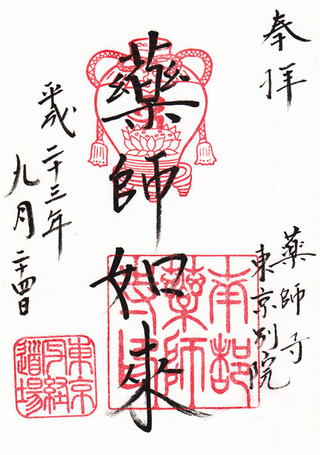 奉拝
薬師寺
東京別院
藥師如來
平成二十三年
九月二十四日
南都
藥師
寺印
東京
写経
道場